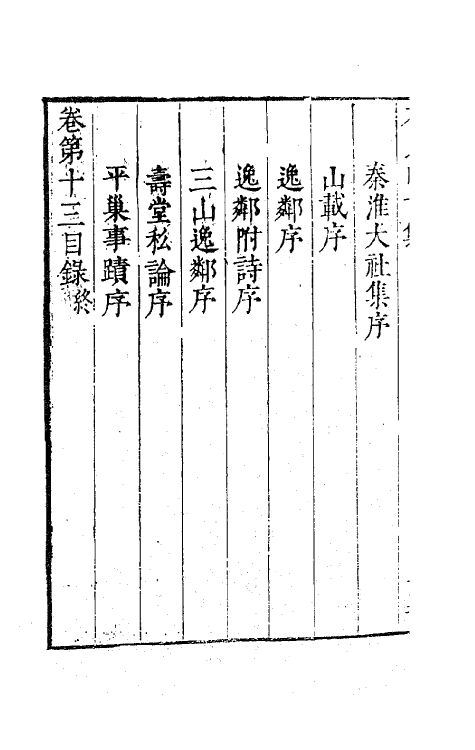 秦淮大社集序
山載序
逸鄰序
逸鄰附詩序
三山逸鄰序
壽堂私論序
平巢事蹟序
卷第十三目錄終